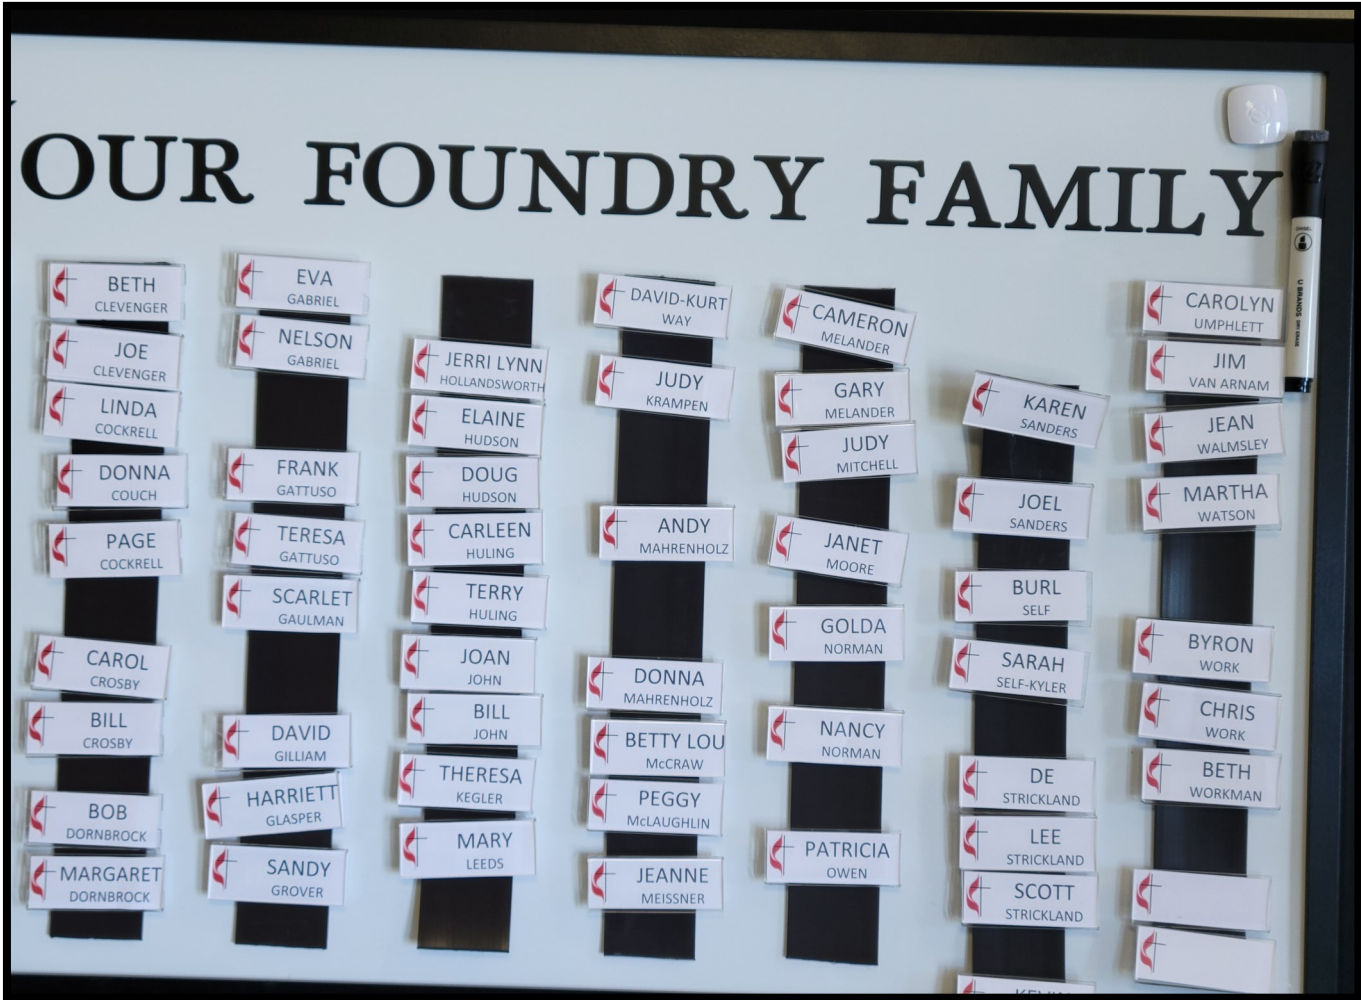 OUR FOUNDRY FAMILY
BETH
CLEVENGER
JOE
CLEVENGER
LINDA
COCKRELL
DONNA
COUCH
PAGE
COCKRELL
CAROL
CROSBY
BILL
CROSBY
BOB
DORNBROCK
MARGARET
DORNBROCK
EVA
GABRIEL
NELSON
GABRIEL
FRANK
GATTUSO
TERESA
GATTUSO
SCARLET
GAULMAN
DAVID
GILLIAM
HARRIETT
GLASPER
SANDY
GROVER
JERRI LYNN
HOLLANDSWORTH
ELAINE
HUDSON
DOUG
HUDSON
CARLEEN
HULING
TERRY
HULING
JOAN
JOHN
BILL
JOHN
THERESA
KEGLER
MARY
LEEDS
DAVID-KURT
WAY
JUDY
KRAMPEN
ANDY
MAHRENHOLZ
DONNA
MAHRENHOLZ
BETTY LOU
McCRAW
PEGGY
McLAUGHLIN
JEANNE
MEISSNER
CAMERON
MELANDER
GARY
MELANDER
JUDY
MITCHELL
JANET
MOORE
GOLDA
NORMAN
NANCY
NORMAN
PATRICIA
OWEN
KAREN
SANDERS
JOEL
SANDERS
BURL
SELF
SARAH
SELF-KYLER
DE
STRICKLAND
LEE
STRICKLAND
SCOTT
STRICKLAND
CAROLYN
UMPHLETT
JIM
VAN ARNAM
JEAN
WALMSLEY
MARTHA
WATSON
BYRON
WORK
CHRIS
WORK
BETH
WORKMAN
U BRANDS